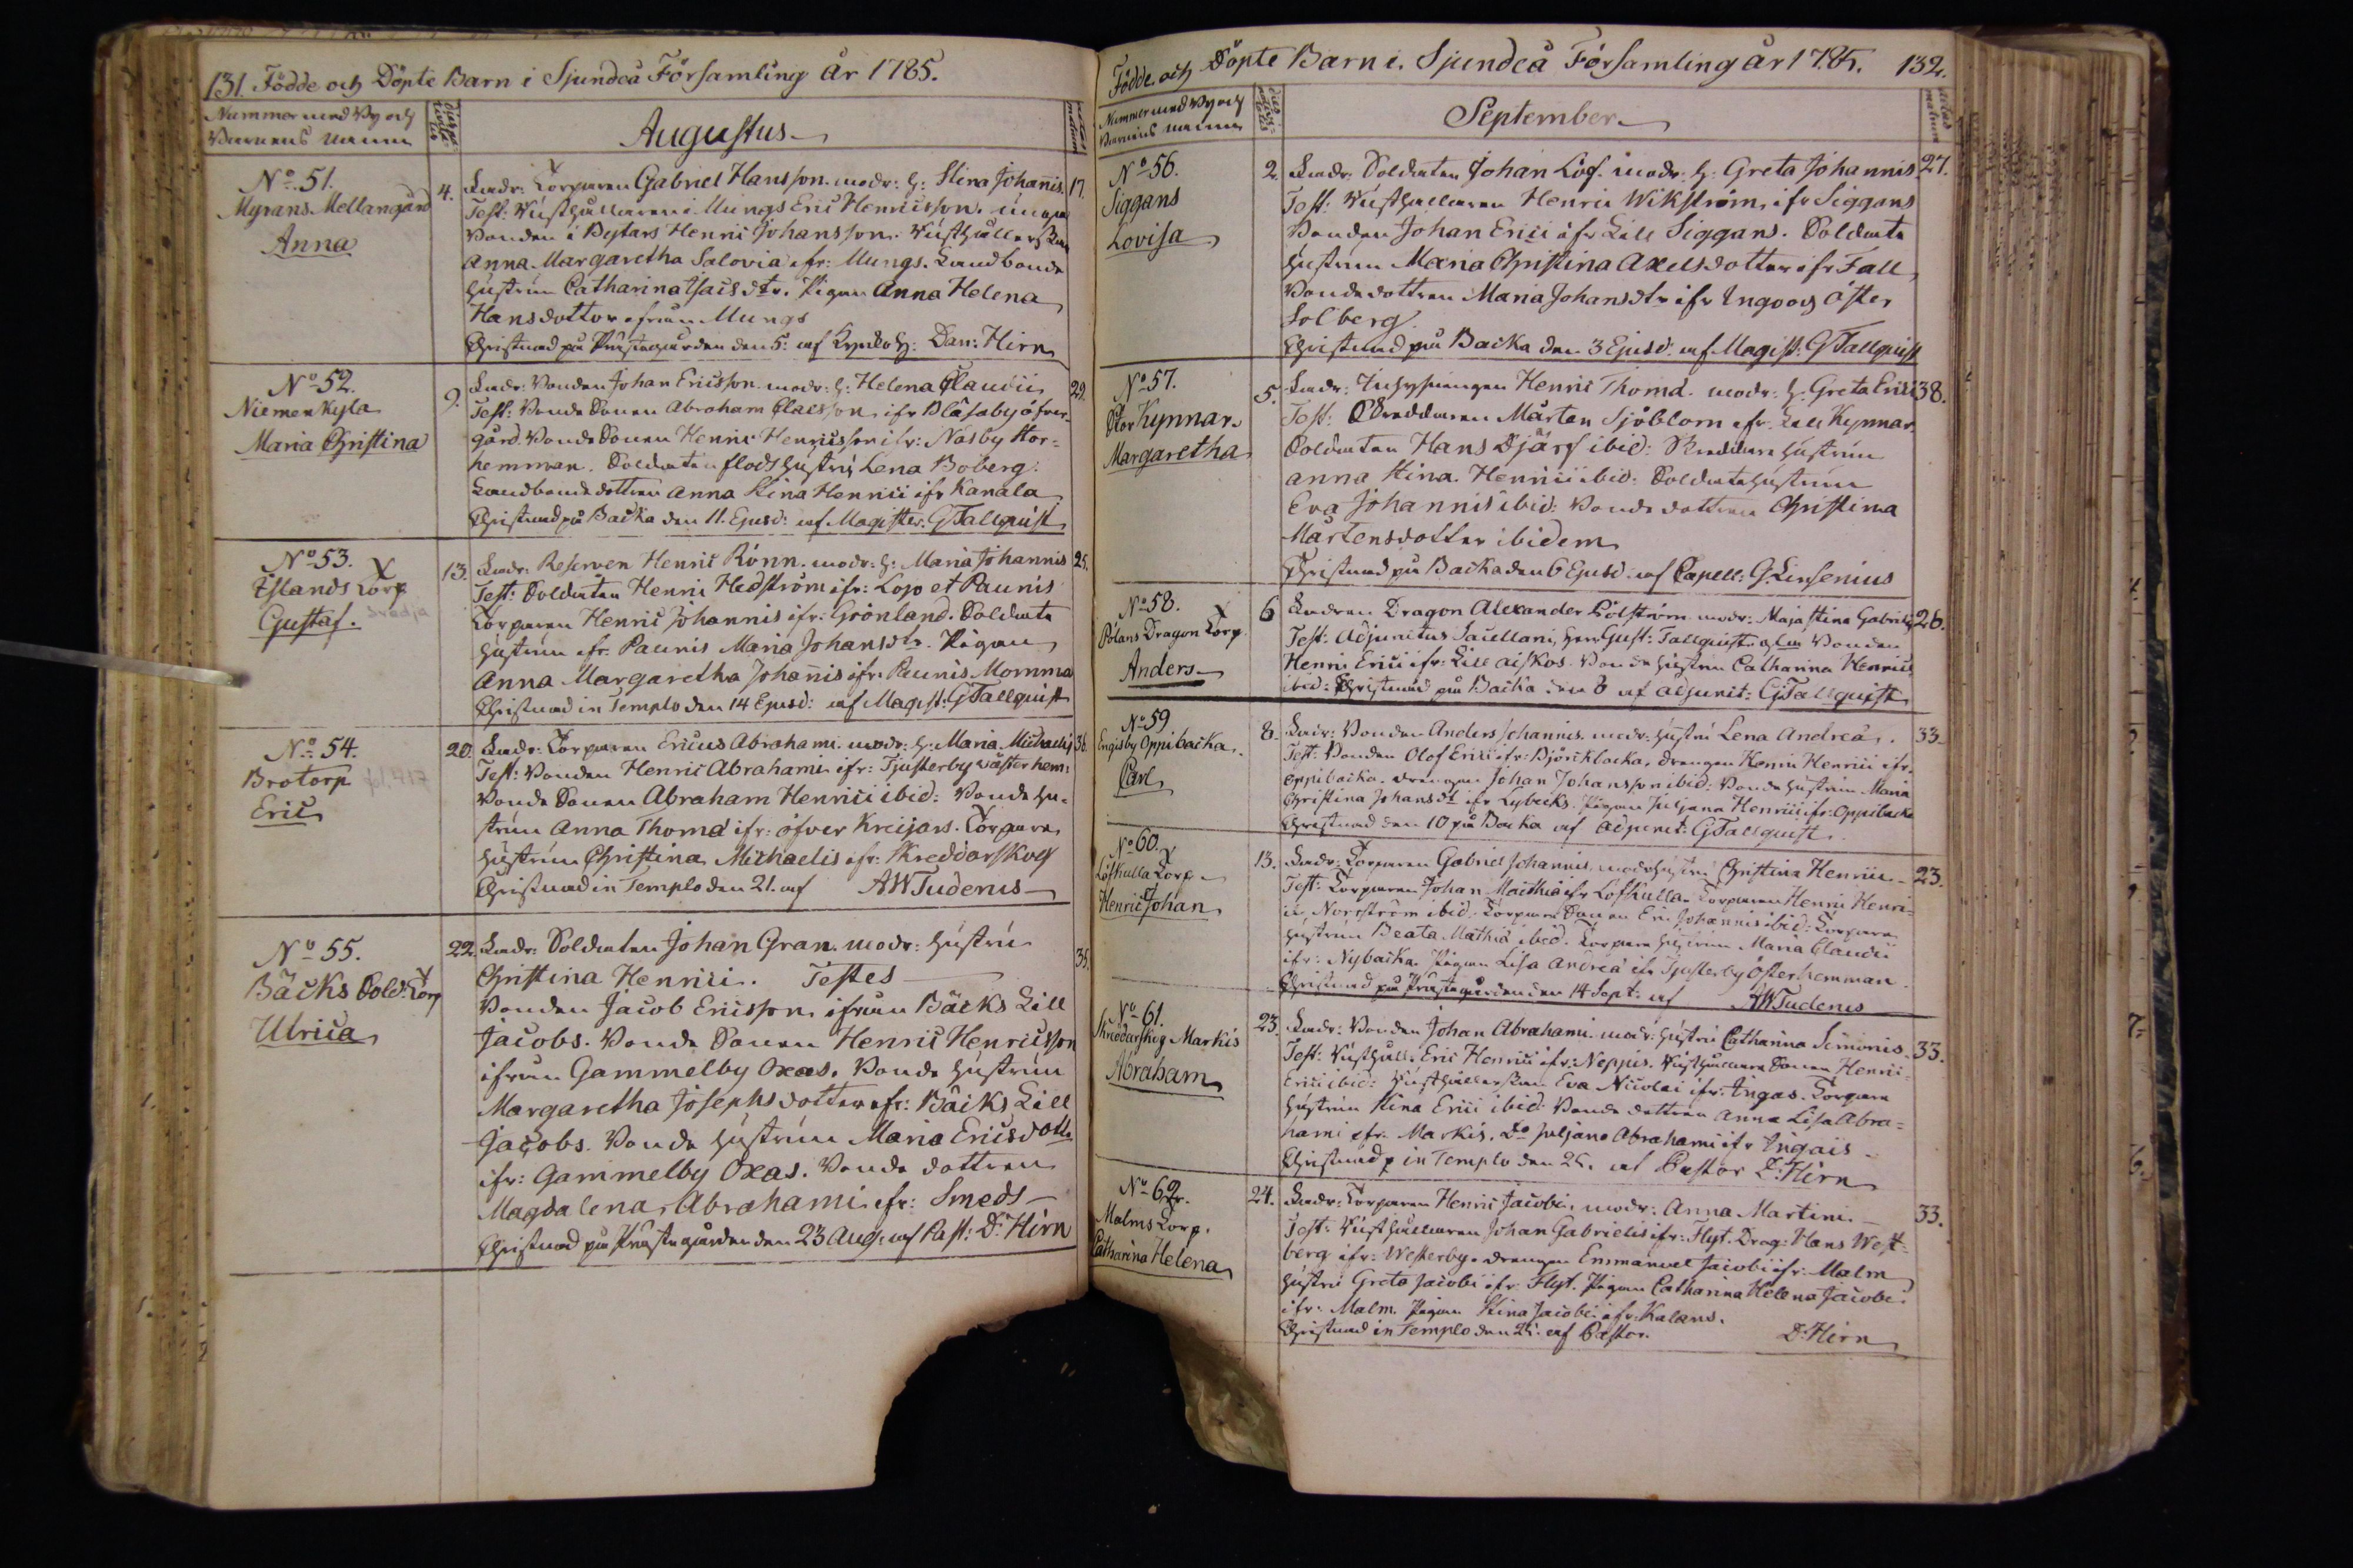 131. Födde och Döpte Barn i Sjundeå Församling år 1785.
Nummer med By och
Barnens namn
Augustus
No 51.
Myrans Mellangård
Anna
4. Fadr: Torparen Gabriel Hansson. modr: h: Stina Johannis. 17.
Test: Rusthållaren i Mungs Eric Henricsson.
Bonden i Bytars Henric Johansson. Rusthållerskan
Anna Margaretha Salovia ifr: Mungs. Landbonde
hustrun Catharina Isacs dtr. Pigan Anna Helena
Hansdotter ifrån Mungs
Christnad på Prästegården den 5: af Kyrkoh: Dan: Hirn
No 52.
Niemenkyla
Maria Christina
9. Fadr: Bonden Johan Ericsson. modr: h: Helena Claudii 29.
Test: Bonde Sonen Abraham Claesson ifr Blåsaby öfver-
gård. Bonde Sonen Henric Henricsson ifr: Näsby Stor-
hemman. Soldaten Flods hustru Lena Boberg.
Landbonde dottren Anna Stina Henrici ifr Kanala
Christnad på Backa den 11. Ejusd: af Magister. G Tallquist
No 53.
Estlands Torp
Gustaf.
13. Fadr: Reserven Henric Rönn. modr: h: Maria Johannis 25.
Test: Soldaten Henric Hedström ifr: Lojo et Paunis
Torparen Henric Johannis ifr: Grönland. Soldate
hustrun ifr. Paunis Maria Johans dtr. Pigan
Anna Margaretha Johannis ifr: Paunis Momma
Christnad in Templo den 14 Ejusd: af Magist: G Tallquist
No 54.
Brotorp fol. 417
Eric
20. Fadr: Torparen Ericus Abrahami. modr: h: Maria Michaelis 36.
Test: Bonden Henric Abrahami ifr: Tjusterby wäster hem:
Bonde Sonen Abraham Henrici ibid: Bonde hu-
strun Anna Thomæ ifr: öfver Kreijars. Torpare
hustrun Christina Michaelis ifr: Skreddarskog
Christnad in Templo den 21. af AW Tudenus
No 55.
Bäcks Sold: Torp
Ulrica
22. Fadr: Soldaten Johan Gran. modr: hustru 35.
Christina Henrici. Testes
Bonden Jacob Ericsson ifrån Bäcks Lill
Jacobs. Bonde Sonen Henric Henricsson
ifrån Gammelby Oxas. Bonde hustrun
Margaretha Josephsdotter ifr: Bäcks Lill
Jacobs. Bonde hustrun Maria Ericsdotter
ifr: Gammelby Oxas. Bonde dottren
Magdalena Abrahami ifr: Smeds
Christnad på Prästegården den 23 Aug: af Past: D: Hirn
Födde och Döpte Barn i Sjundeå Församling år 1785. 132.
Nummer med By och
Barnens namn
September
No 56.
Siggans
Lovisa
2. Fadr: Soldaten Johan Löf. modr: h: Greta Johannis 27.
Test: Rusthållaren Henric Wikström ifr Siggans
Bonden Johan Erici ifr Lill Siggans. Soldate
hustrun Maria Christina Axelsdotter ifr Fall
Bonde dottren Maria Johans dtr ifr Ingvog öster
Solberg.
Christnad på Backa den 3 Ejusd. af Magist: G Tallquist
No 57.
Stor Kynnar.
Margaretha
5. Fadr: Inhysingen Henric Thomæ. modr: h: Greta Erici 38.
Test: Skreddaren Mårten Sjöblom ifr. Lill Kynnar.
Soldaten Hans Djärf ibid: Skreddare hustrun
Anna Stina Henrici ibid: Soldate hustrun
Eva Johannis ibid: Bonde dottren Christina
Mårtensdotter ibidem
Christnad på Backa den 6 Ejusd. af Capell: G. Linsenius
No 58.
Pölans Dragon Torp
Anders
6 Fadren Dragon Alexander Pölström modr: Maja Stina Gabrielis 26.
Test: Adjunctus Sacellani, Herr Gust: Tallquist Bonden
Henric Erici ifr: Lill aiskos. Bonde hustrun Catharina Henrici
ibid: Christnad på Backa den 8 af adjunct: G Tallquist
No 59
Engisby Oppibacka.
Carl
8. Fadr: Bonden Anders Johannis. modr: hustru Lena Andreæ. 33.
Test: Bonden Olof Erici ifr: Björcklacka, drengen Henric Henrici ifr.
Oppibacka. drengen Johan Johansson ibid: Bonde hustrun Maria
Christina Johans dtr ifr Lybecks. Pigan Juliana Henrici ifr: Oppibacka
Christnad den 10 på Backa af adjunct: G Tallquist.
No 60.
Löfkulla Torp
Henric Johan
13. Fadr: Torparen Gabriel Johannis, modr hustru Christina Henrici 23.
Test: Torparen Johan Mathiæ ifr Löfkulla. Torparen Henric Henri-
ci, Norrström ibid. Torpare Sonen Eric Johannis ibid: Torpare
hustrun Beata Mathiæ ibid. Torpare hustrun Maria Claudii
ifr: Nybacka. Pigan Lisa Andreæ ifr Tjusterby Österhemman.
Christnad på Prästegården den 14 Sept: af AW Tudenus
No 61.
Skreddarskog Markis
Abraham
23. Fadr: Bonden Johan Abrahami. modr: hustru Catharina Simonis 33.
Test: Rusthåll. Eric Henrici ifr: Neppis. Rusthållare Sonen Henric
Erici ibid: Rusthållerskan Eva Nicolai ifr: Ingas. Torpare
hustrun Stina Erici ibid: Bonde dottren Anna Lisa Abra=
hami ifr. Markis. Do Juljana Abrahami ifr Ingais
Christnad in Templo den 25. af Pastor D: Hirn
No 62.
Malms Torp.
Catharina Helena
24. Fadr: Torparen Henric Jacobi, modr: Anna Martini. 33.
Test: Rusthållaren Johan Gabrielis ifr: Flyt. Drag: Hans West-
berg ifr: Westerby. drengen Emmanuel Jacobi ifr: Malm
hustru Greta Jacobi ifr: Flyt. Pigan Catharina Helena Jacobi.
ifr: Malm. Pigan Stina Jacobi ifr: Kalans.
Christnad in Templo den 25: af Pastor. D: Hirn